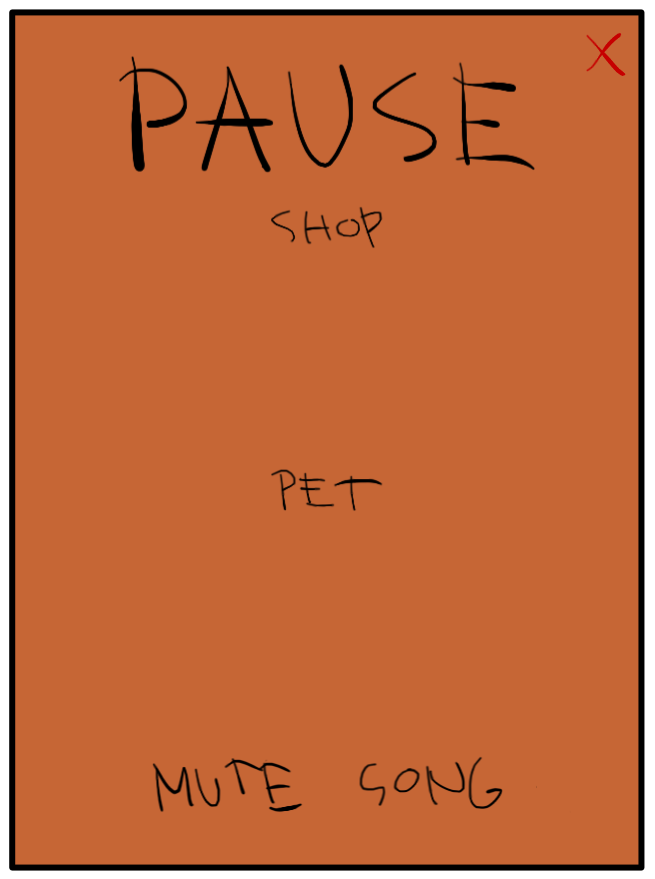 PAUSE X
SHOP
PET
MUTE SONG